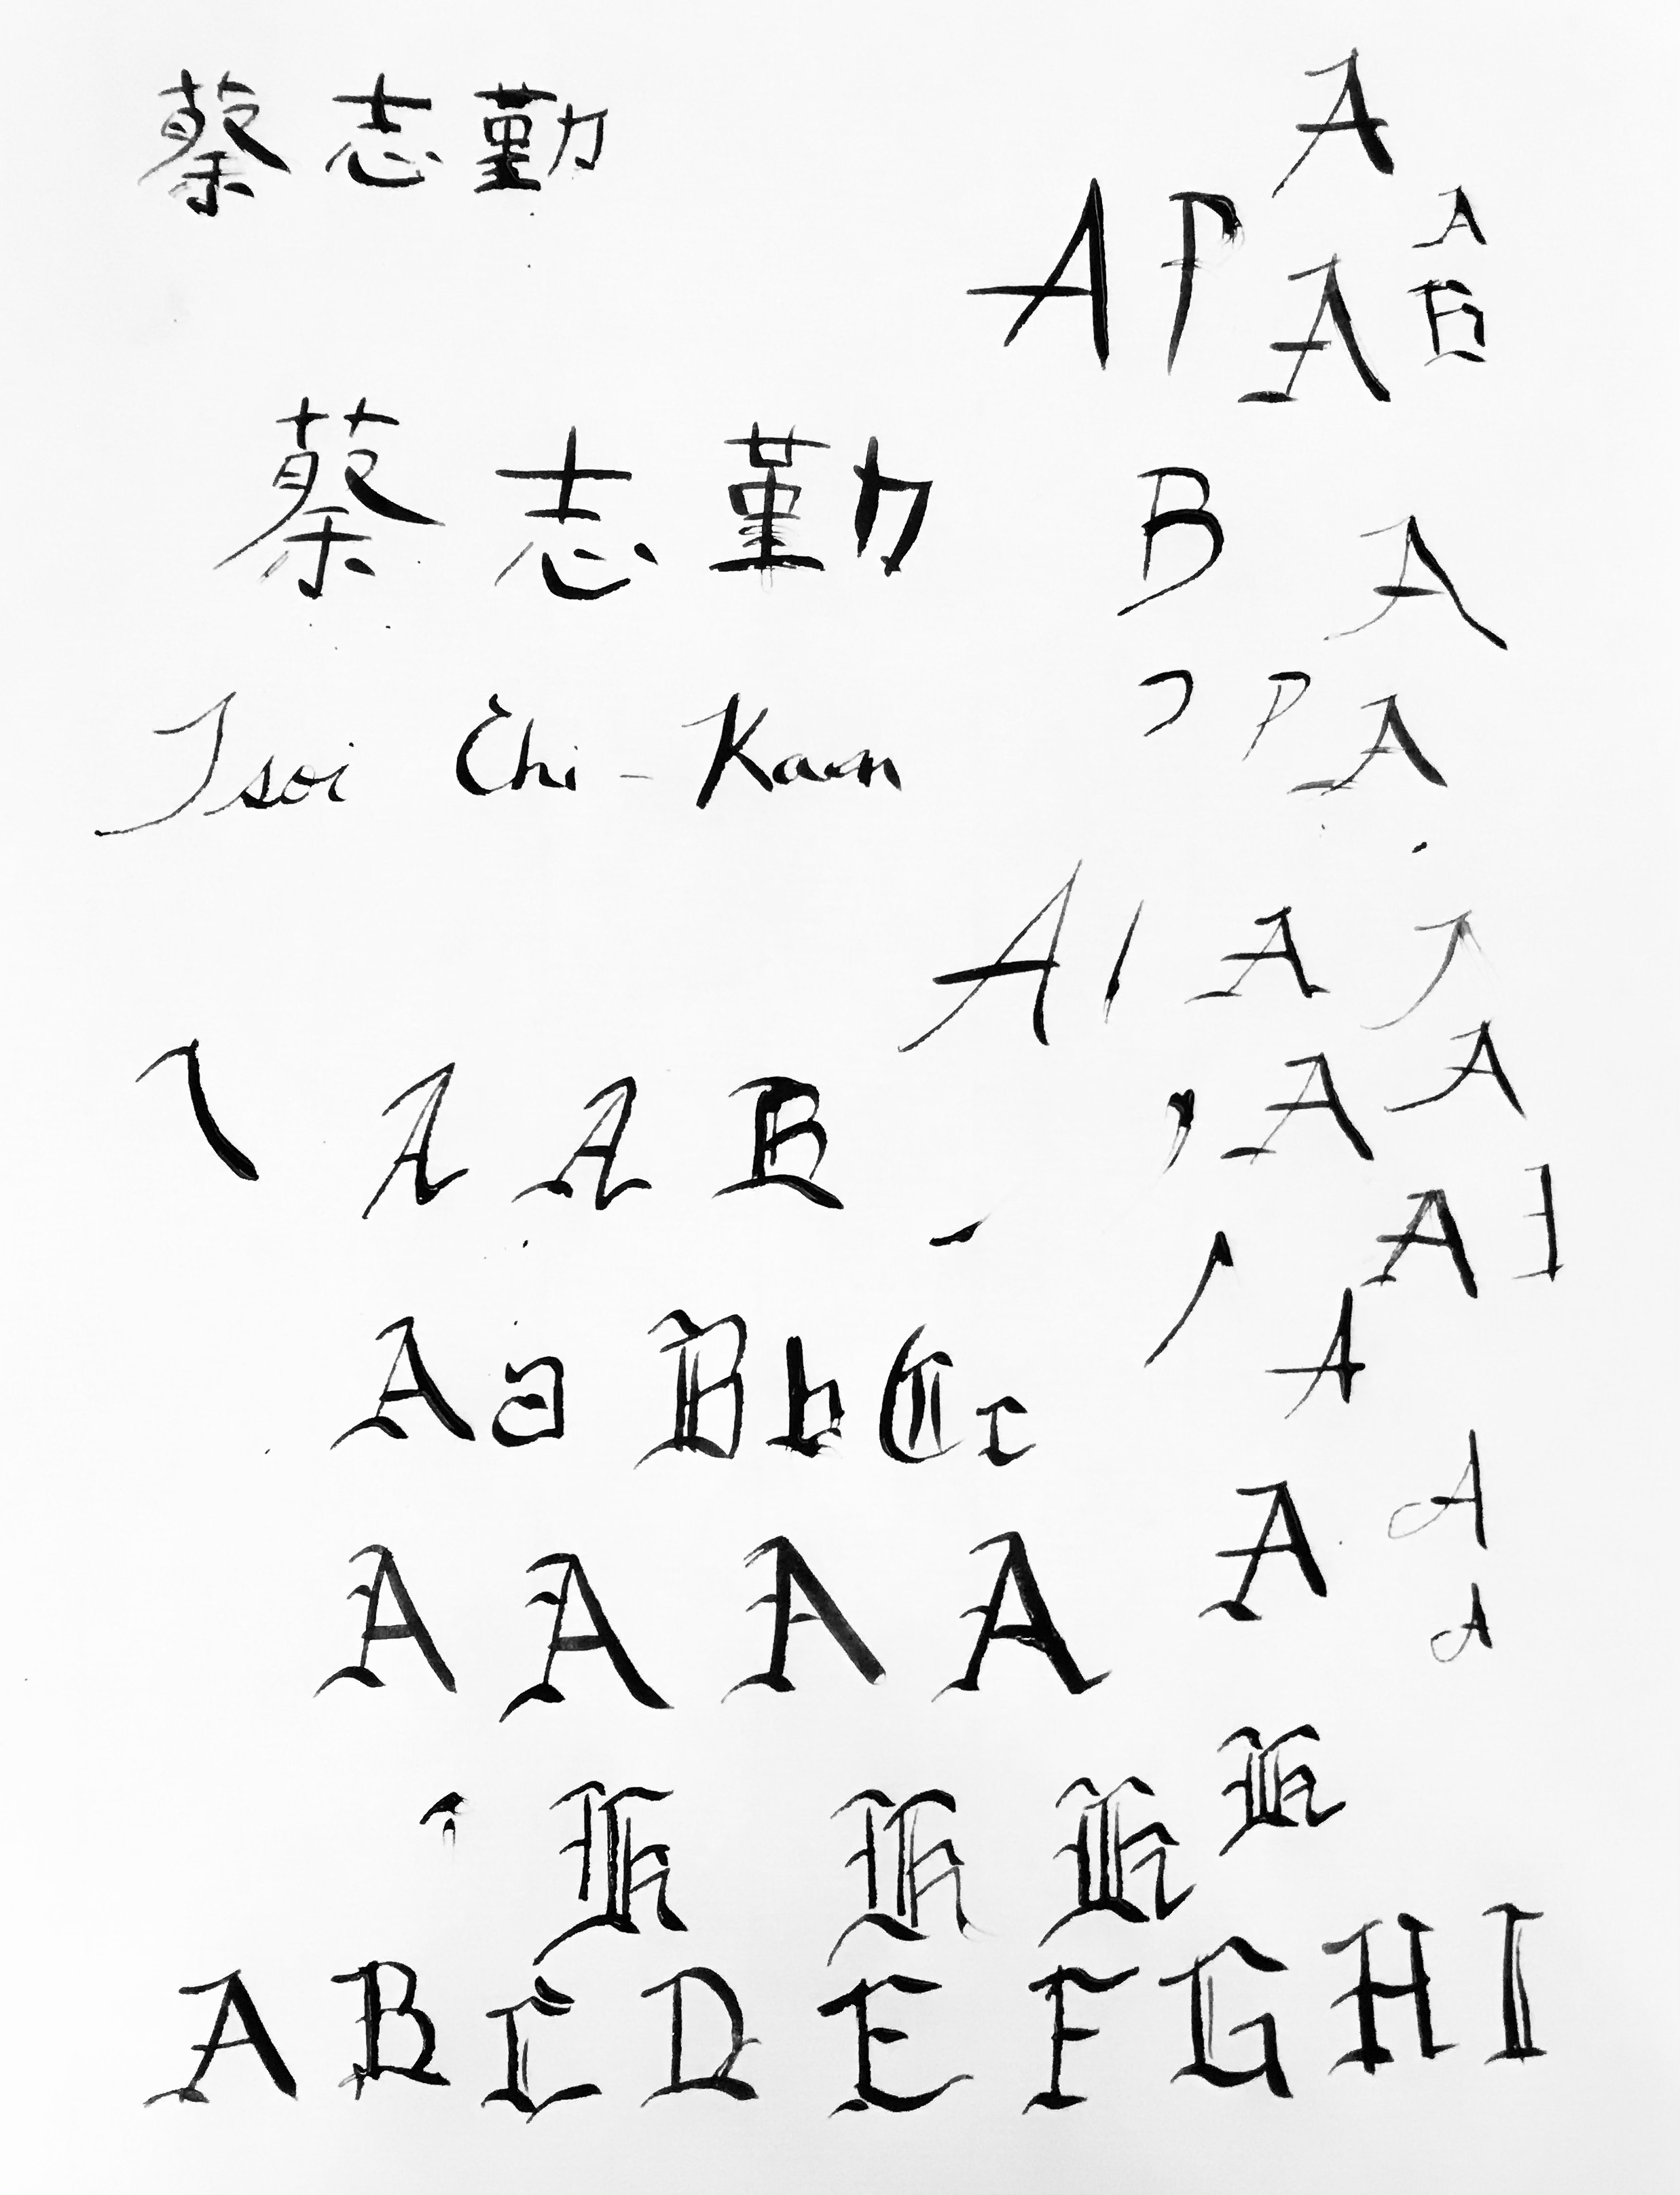 蔡志勤
A
A P
A
A
B
蔡志勤
B
A
Tsoi Chi-Kan
P A
A A
A A B
A A
A
A
Aa Bb Cc
A
A
A A A A
A
K K K K
A B C D E F G H I